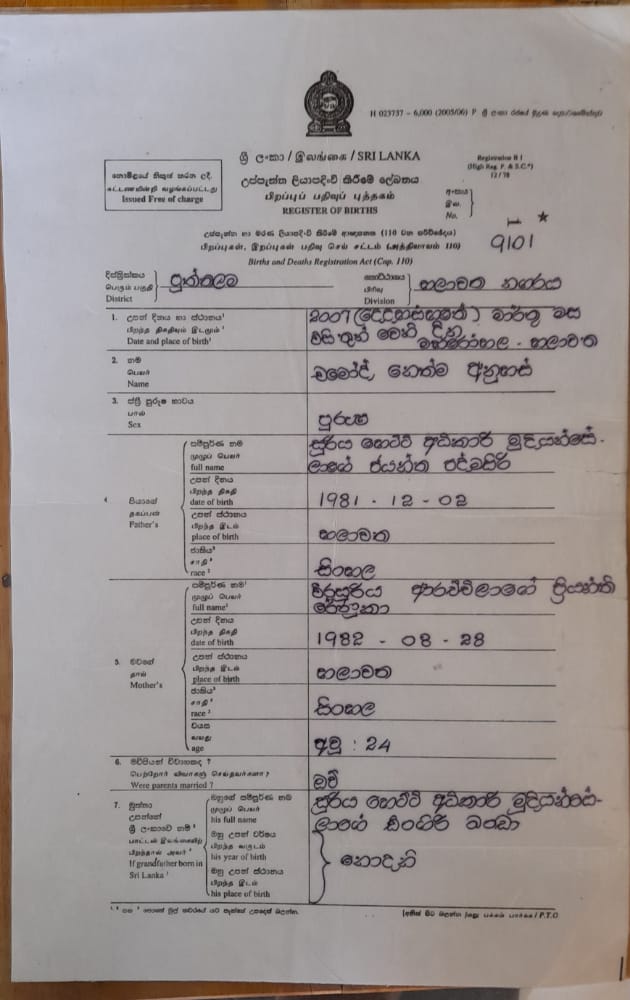 H 023737 – 6,000 (2005/06) P ශ්‍රී ලංකා රජයේ මුද්‍රණ දෙපාර්තමේන්තුව
ශ්‍රී ලංකා / இலங்கை / SRI LANKA
Registration B 1
(High Reg. P. & S.C.*)
12 / 78
නොමිලයේ නිකුත් කරන ලදි.
கட்டணமின்றி வழங்கப்பட்டது
Issued Free of charge
උප්පැන්න ලියාපදිංචි කිරීමේ ලේඛනය
பிறப்புப் பதிவுப் புத்தகம்
REGISTER OF BIRTHS
අංකය
இல.
No.
9101
උප්පැන්න හා මරණ ලියාපදිංචි කිරීමේ ආඥාපනත (110 වන පරිච්ඡේදය)
பிறப்புகள், இறப்புகள் பதிவு செய் சட்டம் (அத்தியாயம் 110)
Births and Deaths Registration Act (Cap. 110)
දිස්ත්‍රික්කය
பெரும் பகுதி
District
පුත්තලම
කොට්ඨාසය
பிரிவு
Division
හලාවත නගරය
1. උපන් දිනය හා ස්ථානය¹
பிறந்த திகதியும் இடமும்¹
Date and place of birth¹
2007 (දෙදහස්හතේ) මාර්තු මස
විසි තුන් වෙනි දින
හලාවත
2. නම
பெயர்
Name
චමෝද්, නෙත්ම අනුහස්
3. ස්ත්‍රී පුරුෂ භාවය
பால்
Sex
පුරුෂ
4. පියාගේ
தகப்பன்
Father's
සම්පූර්ණ නම
முழுப் பெயர்
full name
සූරිය හෙට්ටි අධිකාරි මුදියන්සේ-
ලාගේ ජයන්ත පද්මසිරි
උපන් දිනය
பிறந்த திகதி
date of birth
1981 - 12 - 02
උපන් ස්ථානය
பிறந்த இடம்
place of birth
හලාවත
ජාතිය²
சாதி²
race²
සිංහල
5. මවගේ
தாய்
Mother's
සම්පූර්ණ නම¹
முழுப் பெயர்
full name¹
වීරසූරිය ආරච්චිලාගේ ප්‍රියන්ති
රේණුකා
උපන් දිනය
பிறந்த திகதி
date of birth
1982 - 08 - 28
උපන් ස්ථානය
பிறந்த இடம்
place of birth
හලාවත
ජාතිය²
சாதி²
race²
සිංහල
වයස
வயது
age
අවු : 24
6. මව්පියන් විවාහකද ?
பெற்றோர் விவாகஞ் செய்தவர்களா?
Were parents married ?
ඔව්
7. මුත්තා
උපන්නේ
ශ්‍රී ලංකාවේ නම්¹
பாட்டன் இலங்கையிற்
பிறந்தால் அவர்¹
If grandfather born in
Sri Lanka¹
ඔහුගේ සම්පූර්ණ නම
முழுப் பெயர்
his full name
සූරිය හෙට්ටි අධිකාරි මුදියන්සේ-
ලාගේ ඩිංගිරි බණ්ඩා
ඔහු උපන් වර්ෂය
பிறந்த வருடம்
his year of birth
නොදනී
ඔහු උපන් ස්ථානය
பிறந்த இடம்
his place of birth
P.T.O